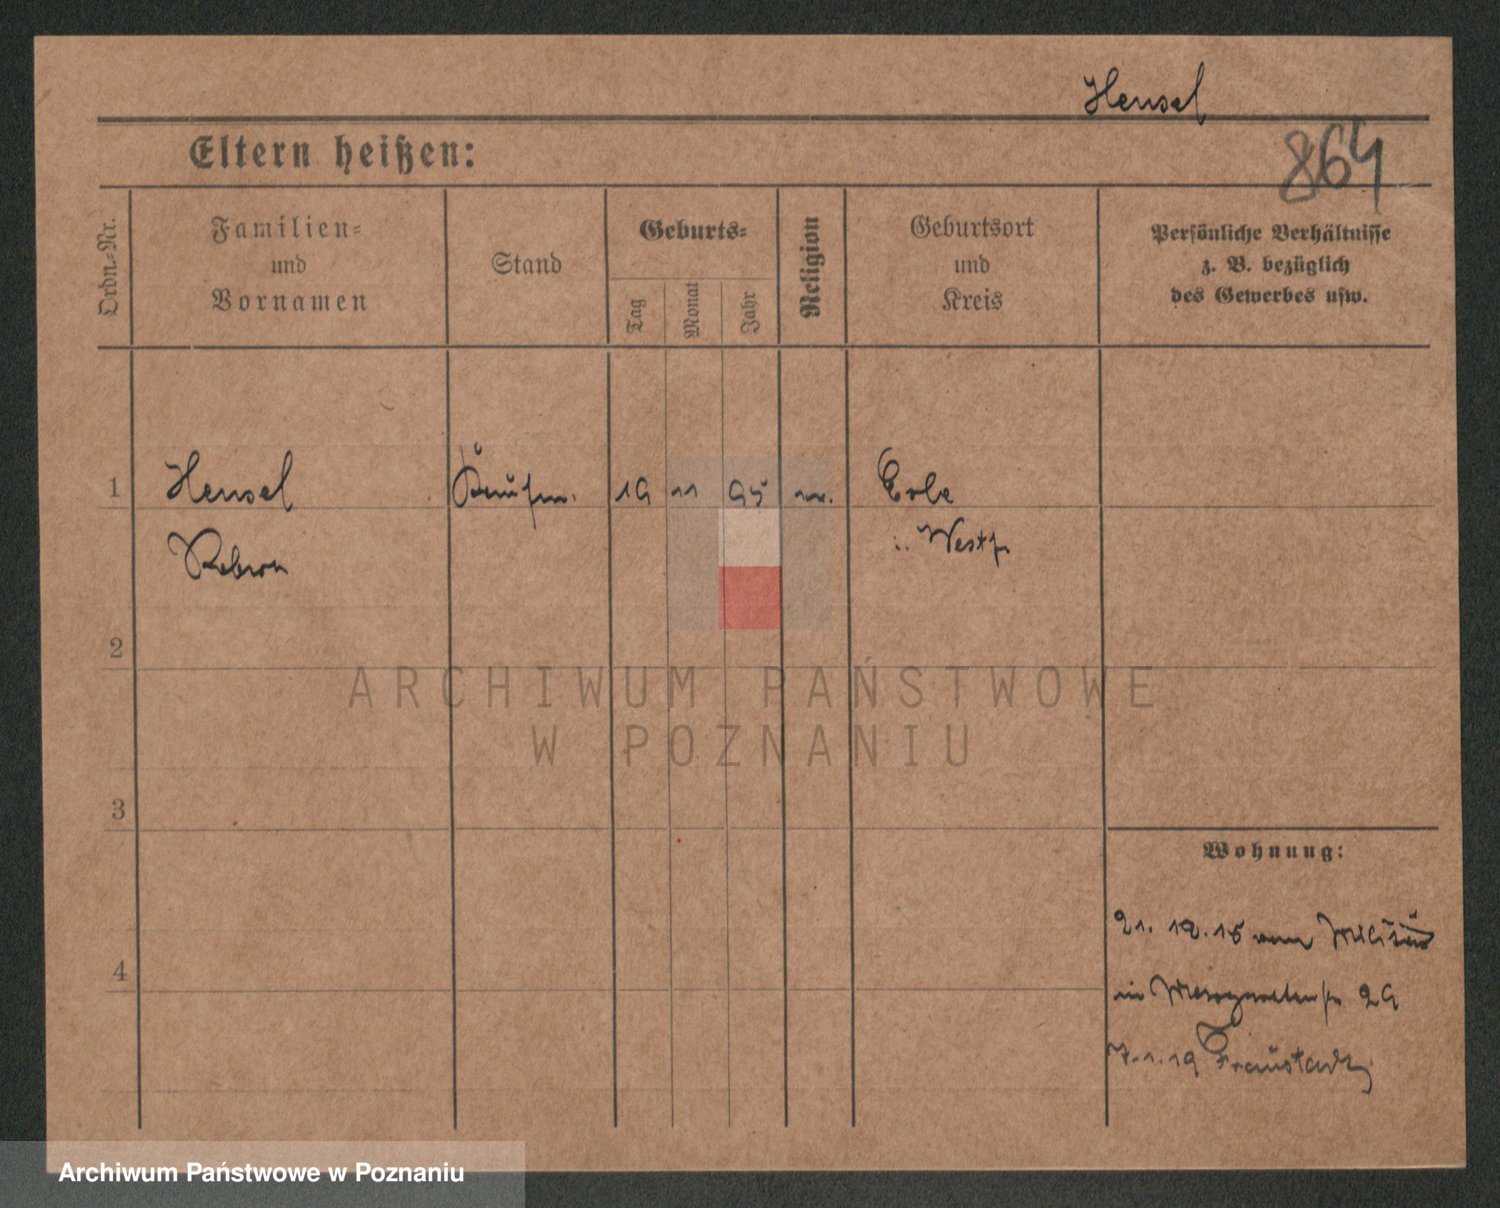 Hensel
864
Eltern heißen:
Ordn.-Nr.
Familien-
und
Vornamen
Stand
Geburts-
Tag
Monat
Jahr
Religion
Geburtsort
und
Kreis
Persönliche Verhältnisse
z. B. bezüglich
des Gewerbes usw.
1 Hensel Kaufm. 19 11 95 Erle
i. Westf
2
ARCHIWUM PAŃSTWOWE
W POZNANIU
3
Wohnung:
21. 12. 18 vom Militär
in 29
4
7. 1. 19 Fraustadt
Archiwum Państwowe w Poznaniu